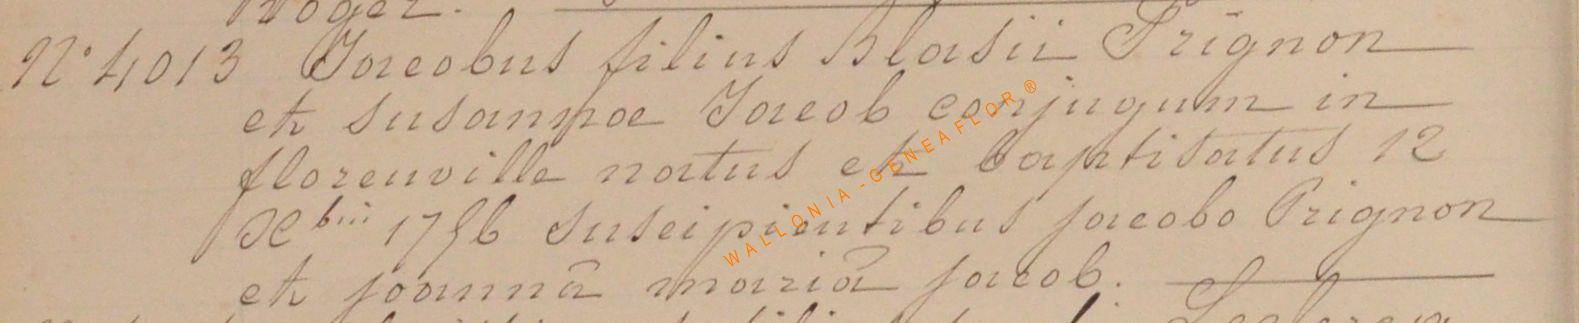 Roger.
N° 4013 Jacobus filius Blasii Prignon
et susannae Jacob conjugum in
florenville natus et baptisatus 12
Xbris 1756 suscipientibus jacobo Prignon
et joannâ mariâ jacob.
WALLONIA-GENEAFLOR®